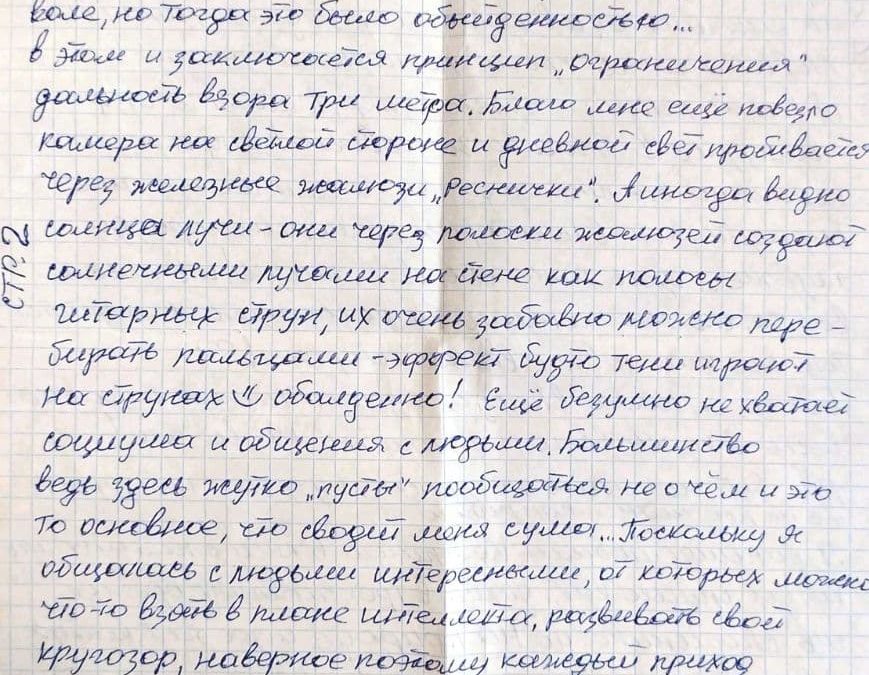 воле, но тогда это было обыйденностью...
в этом и заключается принцип „ограничения"
дальность взора три метра. Благо мне ещё повезло
камера на светлой стороне и дневной свет пробивается
через железные жалюзи „Реснички". А иногда видно
солнца лучи - они через полоски жалюзей создают
солнечными лучами на стене как полосы
гитарных струн, их очень забавно можно пере-
бирать пальцами - эффект будто тени играют
на струнах обалденно! Ещё безумно не хватает
социума и общения с людьми. Большинство
ведь здесь жутко „пусты" пообщаться не о чём и это
то основное, что сводит меня с ума... Поскольку я
общалась с людьми интересными, от которых можно
что-то взять в плане интеллекта, развивать свой
кругозор, наверное поэтому каждый приход
стр. 2